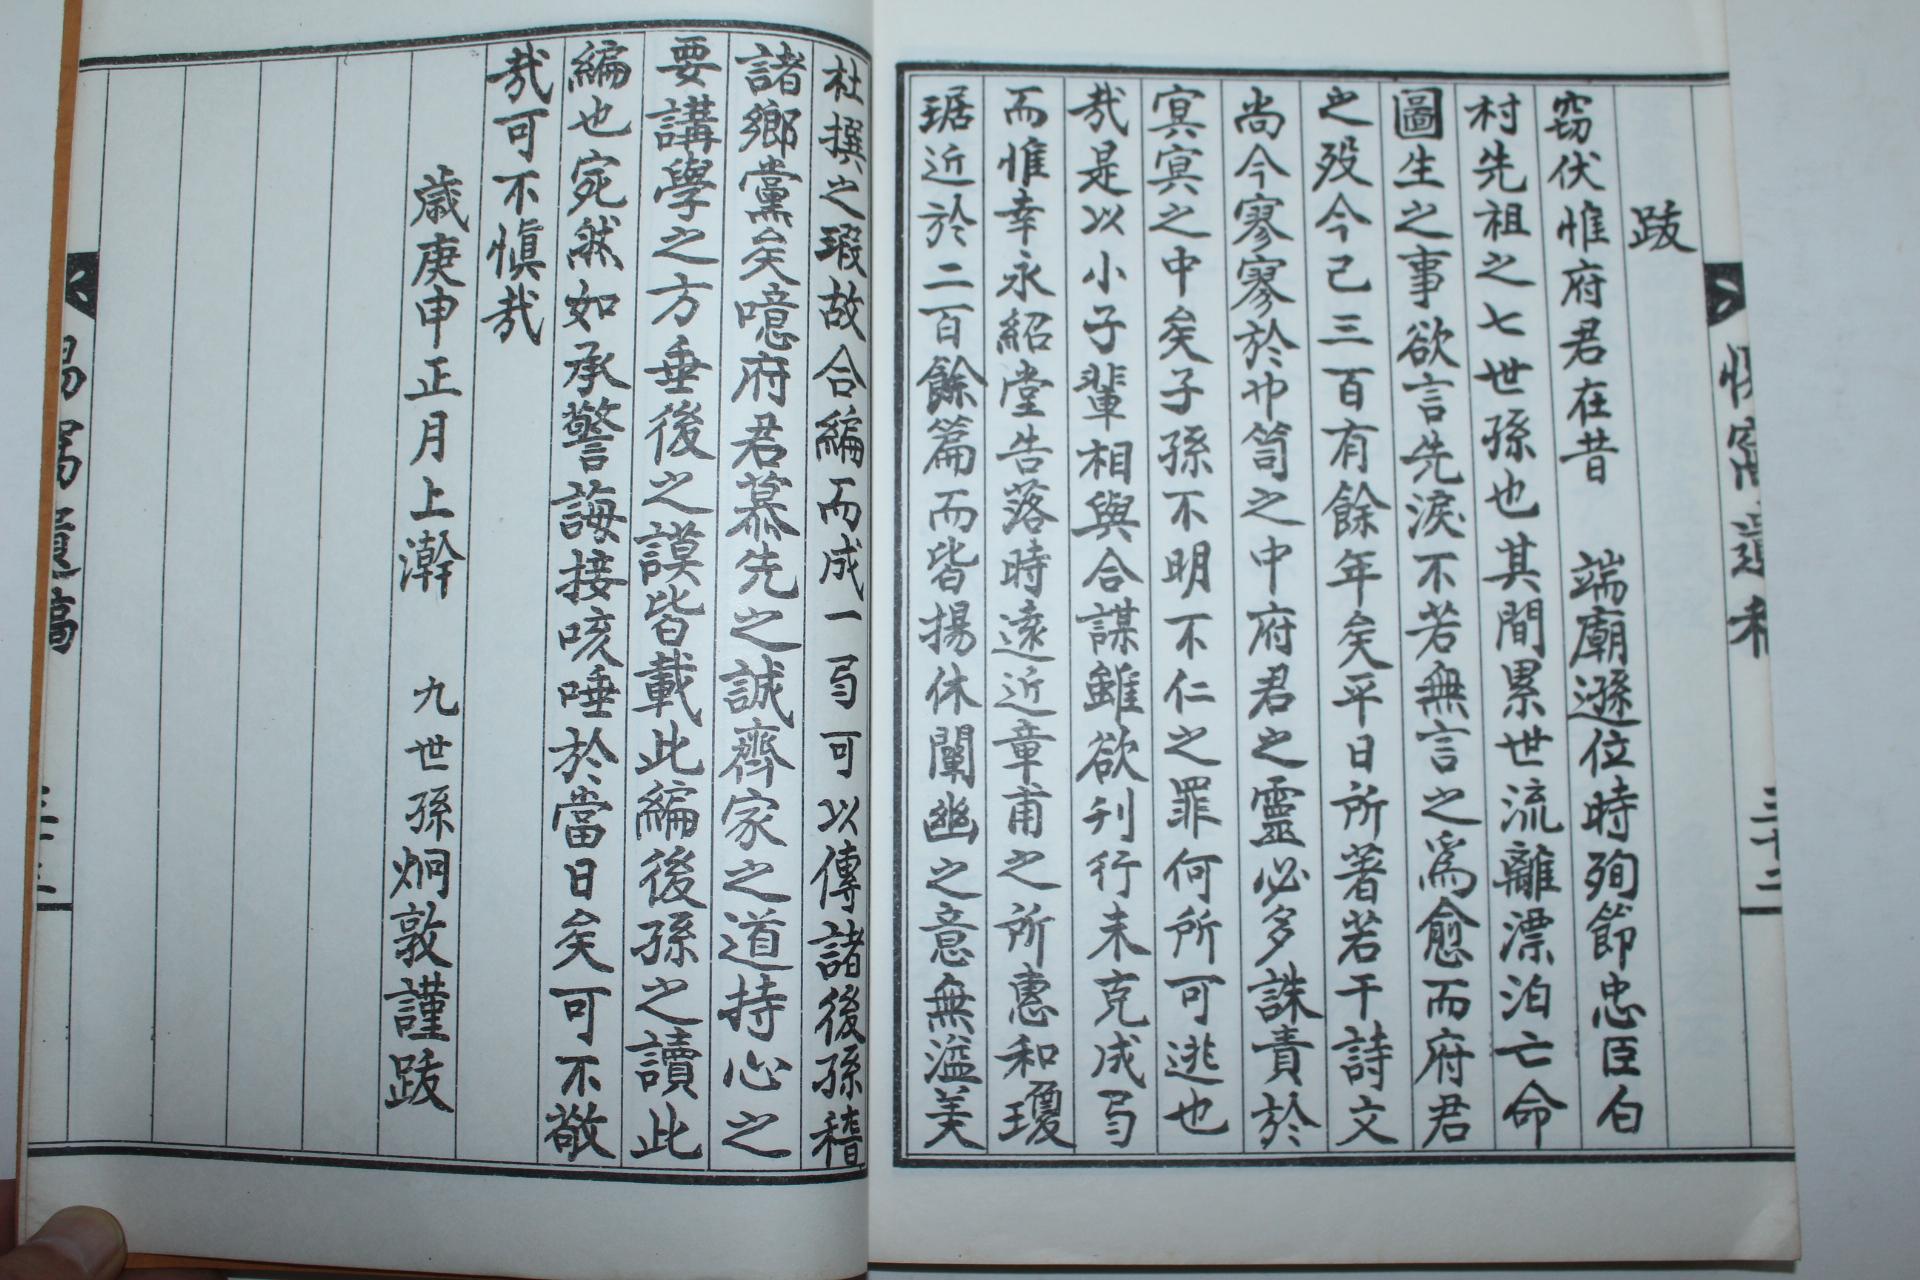 跋
竊伏惟府君在昔 端廟遜位時殉節忠臣白
村先祖之七世孫也其間累世流離漂泊亡命
圖生之事欲言先淚不若無言之爲愈而府君
之歿今已三百有餘年矣平日所著若干詩文
尚今寥寥於巾笥之中府君之靈必多誅責於
冥冥之中矣子孫不明不仁之罪何所可逃也
哉是以小子輩相與合謀雖欲刊行未克成弓
而惟幸永紹堂告落時遠近章甫之所惠和瓊
琚近於二百餘篇而皆揚休闡幽之意無溢美
杜撰之瑕故合編而成一弓可以傳諸後孫稽
諸鄉黨矣噫府君慕先之誠齊家之道持心之
要講學之方垂後之謨皆載此編後孫之讀此
編也宛然如承警誨接咳唾於當日矣可不敬
哉可不愼哉
歲庚申正月上澣 九世孫炯敦謹跋
遺稿
三十二